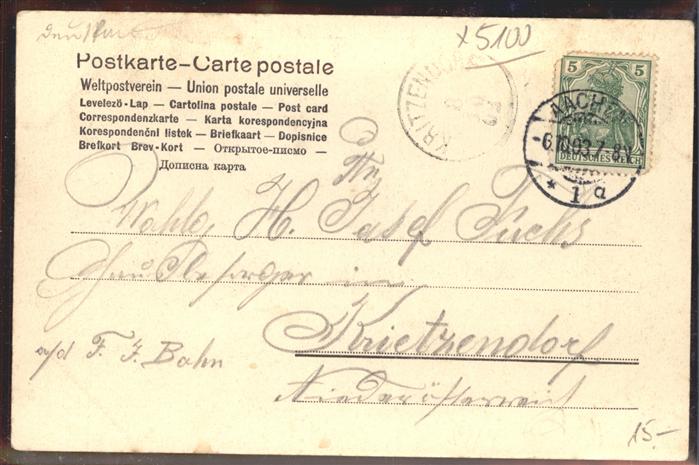 x5100
Postkarte – Carte postale
Weltpostverein — Union postale universelle
Levelezö-Lap — Cartolina postale — Post card
Correspondenzkarte — Karta korespondencyjna
Korespondenční listek — Briefkaart — Dopisnice
Brefkort Brev-Kort — Открытое-письмо —
Дописна карта
KRITZENDORF
5 5
DEUTSCHES REICH
AACHEN
-6.10.03.7-8V.
* 1 d
Wohlg. H. Josef Fuchs
in
Krietzendorf
a/d F. J. Bahn
Niederösterreich
15.-